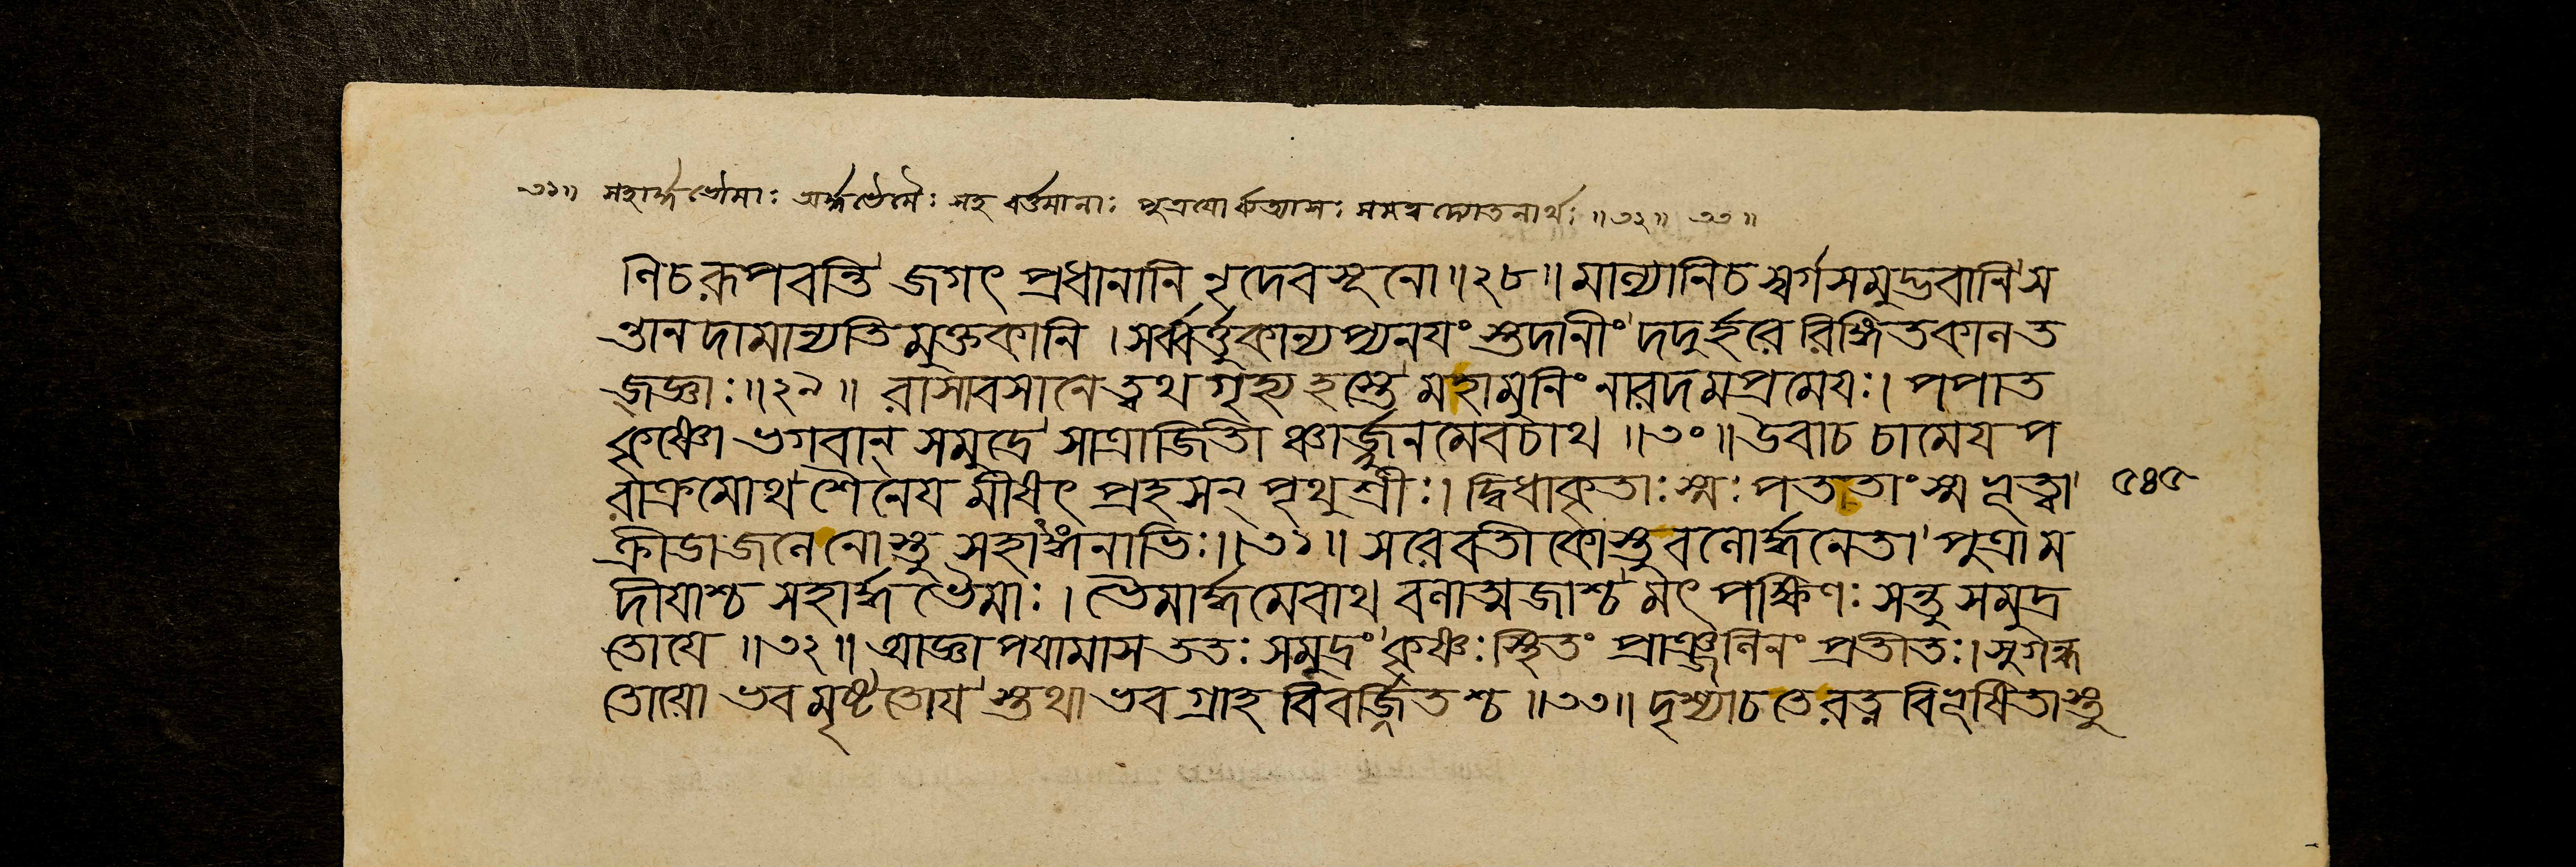 ৩১॥ সহার্দ্ধভৈমাঃ অর্দ্ধভৈমৈঃ সহ বর্ত্তমানাঃ পুত্রযো র্ব্বত্যাসঃ সমত্বদ্যোতনার্থঃ ॥৩২॥ ৩৩॥
নিচরূপবন্তি জগৎ প্রধানানি নৃদেবসূনো॥২৮॥ মাল্যানিচ স্বর্গসমুদ্ভবানি স
ন্তানদামান্যতিমুক্তকানি । সর্ব্বর্ত্তুকান্যপ্যনযংস্তদানীং দদুর্হরে রিঙ্গিতকানত
জ্জ্ঞাঃ॥২৯॥ রাসাবসানেত্বথ গৃহ্য হস্তে মহামুনিং নারদমপ্রমেযঃ। পপাত
কৃষ্ণো ভগবান্ সমুদ্রে সাত্রাজিতী ঞ্চার্জ্জুনমেবচাথ ॥৩০॥ উবাচ চামেয প
রাক্রমোথ শৈনেয মীষৎ প্রহসন্ পৃথুশ্রীঃ। দ্বিধাকৃতাঃস্মঃ পততাংস্ম ভূত্বা ৫৪৫
ক্রীডাজনে নোস্তু সহাঙ্গনাভিঃ॥৩১॥ সরেবতীকোস্তু বলোর্দ্ধনেতা পুত্রাম
দীযাশ্চ সহার্দ্ধভৈমাঃ। ভৈমার্দ্ধমেবাথ বলাত্মজাশ্চ মৎ পক্ষিণঃ সন্তু সমুদ্র
তোযে ॥৩২॥ আজ্ঞাপযামাস ততঃ সমুদ্রং কৃষ্ণঃ স্থিতং প্রাঞ্জলিনং প্রতীতঃ। সুগন্ধ
তোয়ো ভব মৃষ্টতোয স্তথা ভব গ্রাহ বিবর্জ্জিতশ্চ ॥৩৩॥ দৃশ্যাচ তে রত্ন বিভূষিতাস্তু